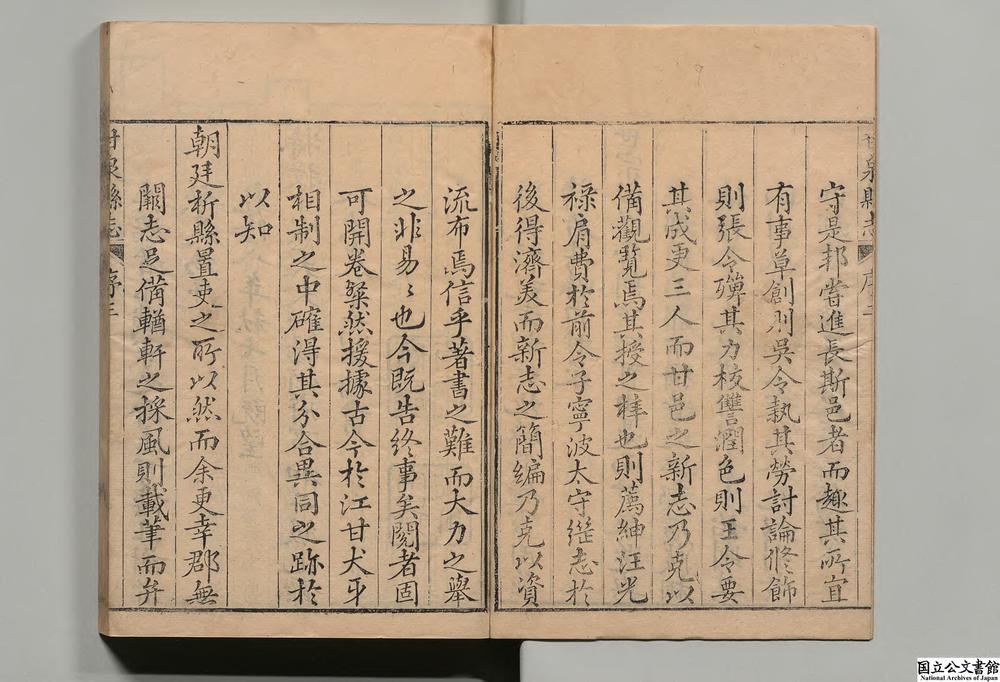 守是邦嘗進長斯邑者而趣其所宜
有事草創則吳令執其勞討論修飾
則張令殫其力校讐潤色則王令要
其成更三人而甘邑之新志乃克以
備觀覽焉其授之梓也則薦紳汪光
祿肩費於前令子寧波太守繼志於
後得濟美而新志之簡編乃克以資
流布焉信乎著書之難而大力之舉
之非易〻也今既告終事矣閱者固
可開卷粲然援據古今於江甘犬牙
相制之中確得其分合異同之跡於
以知
朝廷析縣置吏之所以然而余更幸郡無
闕志足備輶軒之採風則載筆而弁
甘泉縣志
序二
甘泉縣志
序三
国立公文書館
National Archives of Japan